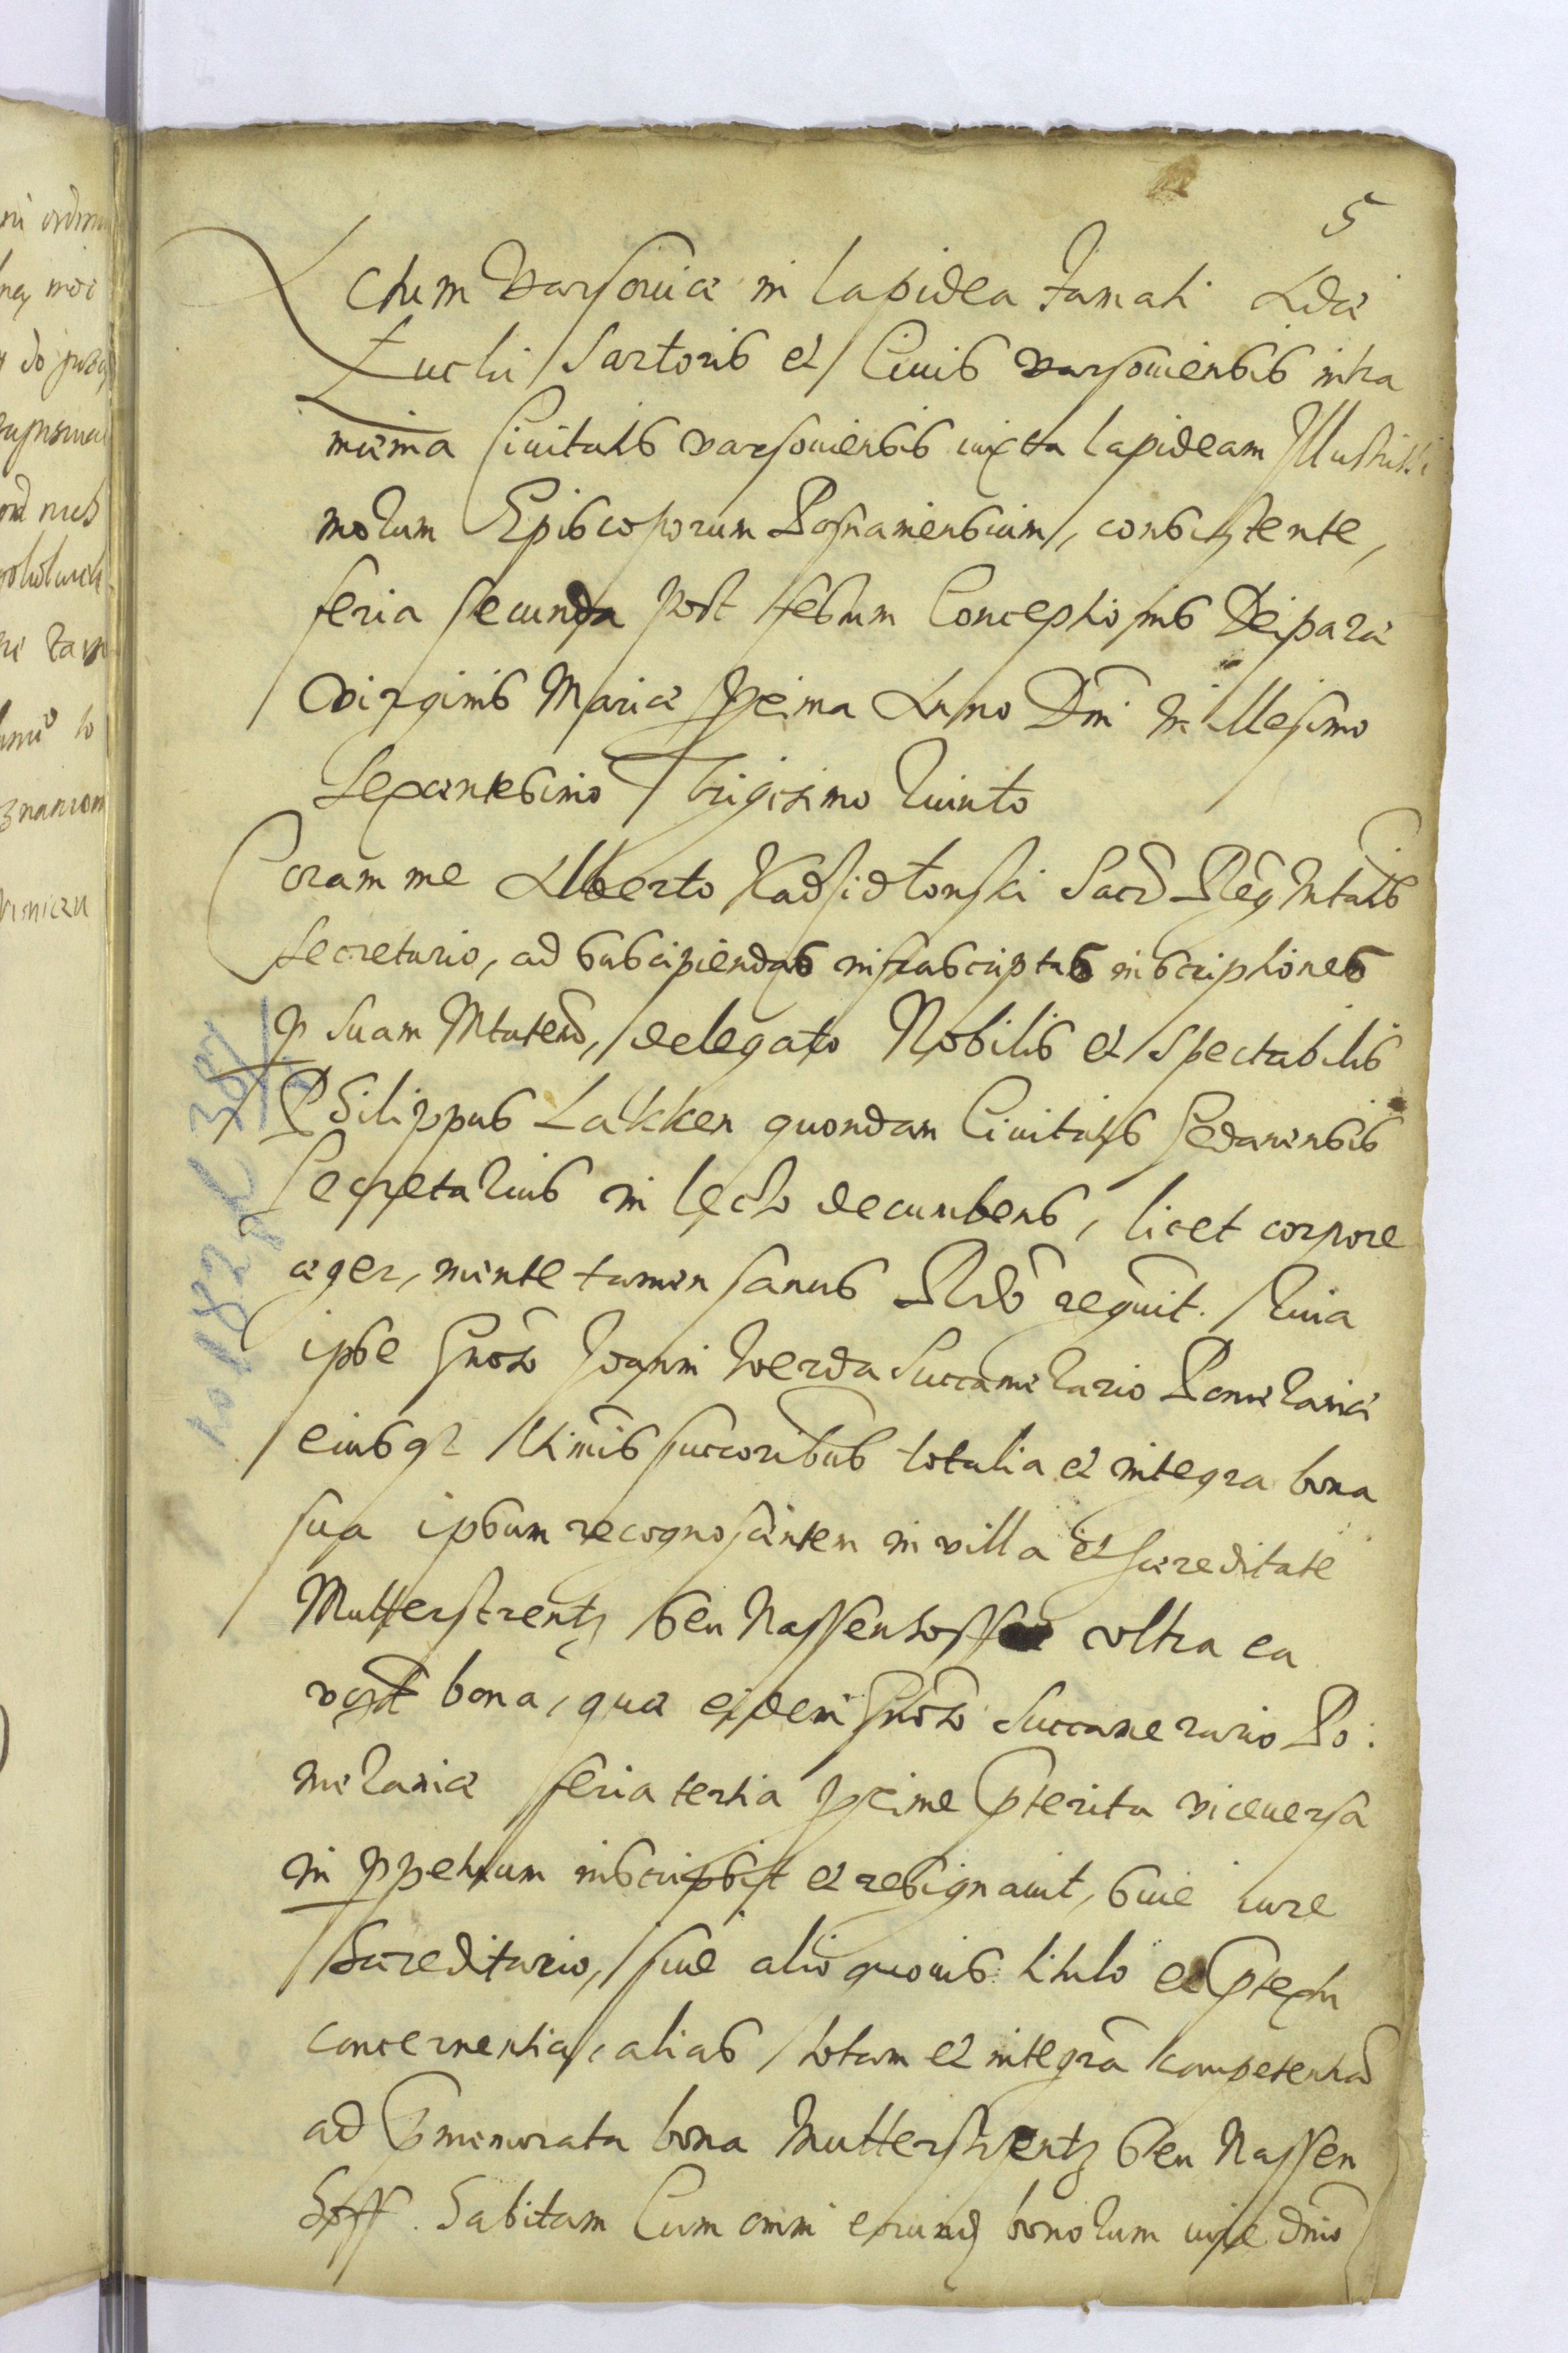 5
Actum Varsouiæ in lapidea Famati Adæ
Zuchi Sartoris et Ciuis varsouiensis intra
mænia Ciuitatis varsouiensis iuxta lapideam Illustrissi
morum Episcoporum Posnaniensium, consistente,
feria secunda post festum Conceptionis Deiparæ
Virginis Mariæ pxima Anno Dni Millesimo
Sexcentesimo Trigesimo Quinto
Coram me Alberto Kadzidłonski Sacr Reg Mtatis
Secretario, ad suscipiendas infrascriptas inscriptiones
p Suam Mtatem, delegato Nobilis et Spectabilis
Philippus Lakken quondam Ciuitatis Gedanensis
Secretarius in lecto decumbens, licet corpore
æger, mente tamen sanus recognouit. Quia
ipse Gnoso Joanni Werda Succamerario Pomeraniæ
eiusq ltimis succoribus totalia et integra bona
sua ipsum recognoscentem in villa et hæreditate
Mutterstrentz seu Nassenhoff vltra ea
bona, quæ eidem Gnoso Succamerario Po:
meraniæ feria tertia pxime pterita viceuersa
in ppetuum inscripsit et resignauit, siue iure
hæreditario, siue alio quouis titulo et ptextu
concernentia, alias totam et integra competentiã
ad pmemorata bona Mutterstrentz seu Nassen
hoff. habitam Cum omni eorund bonorum iure dnio